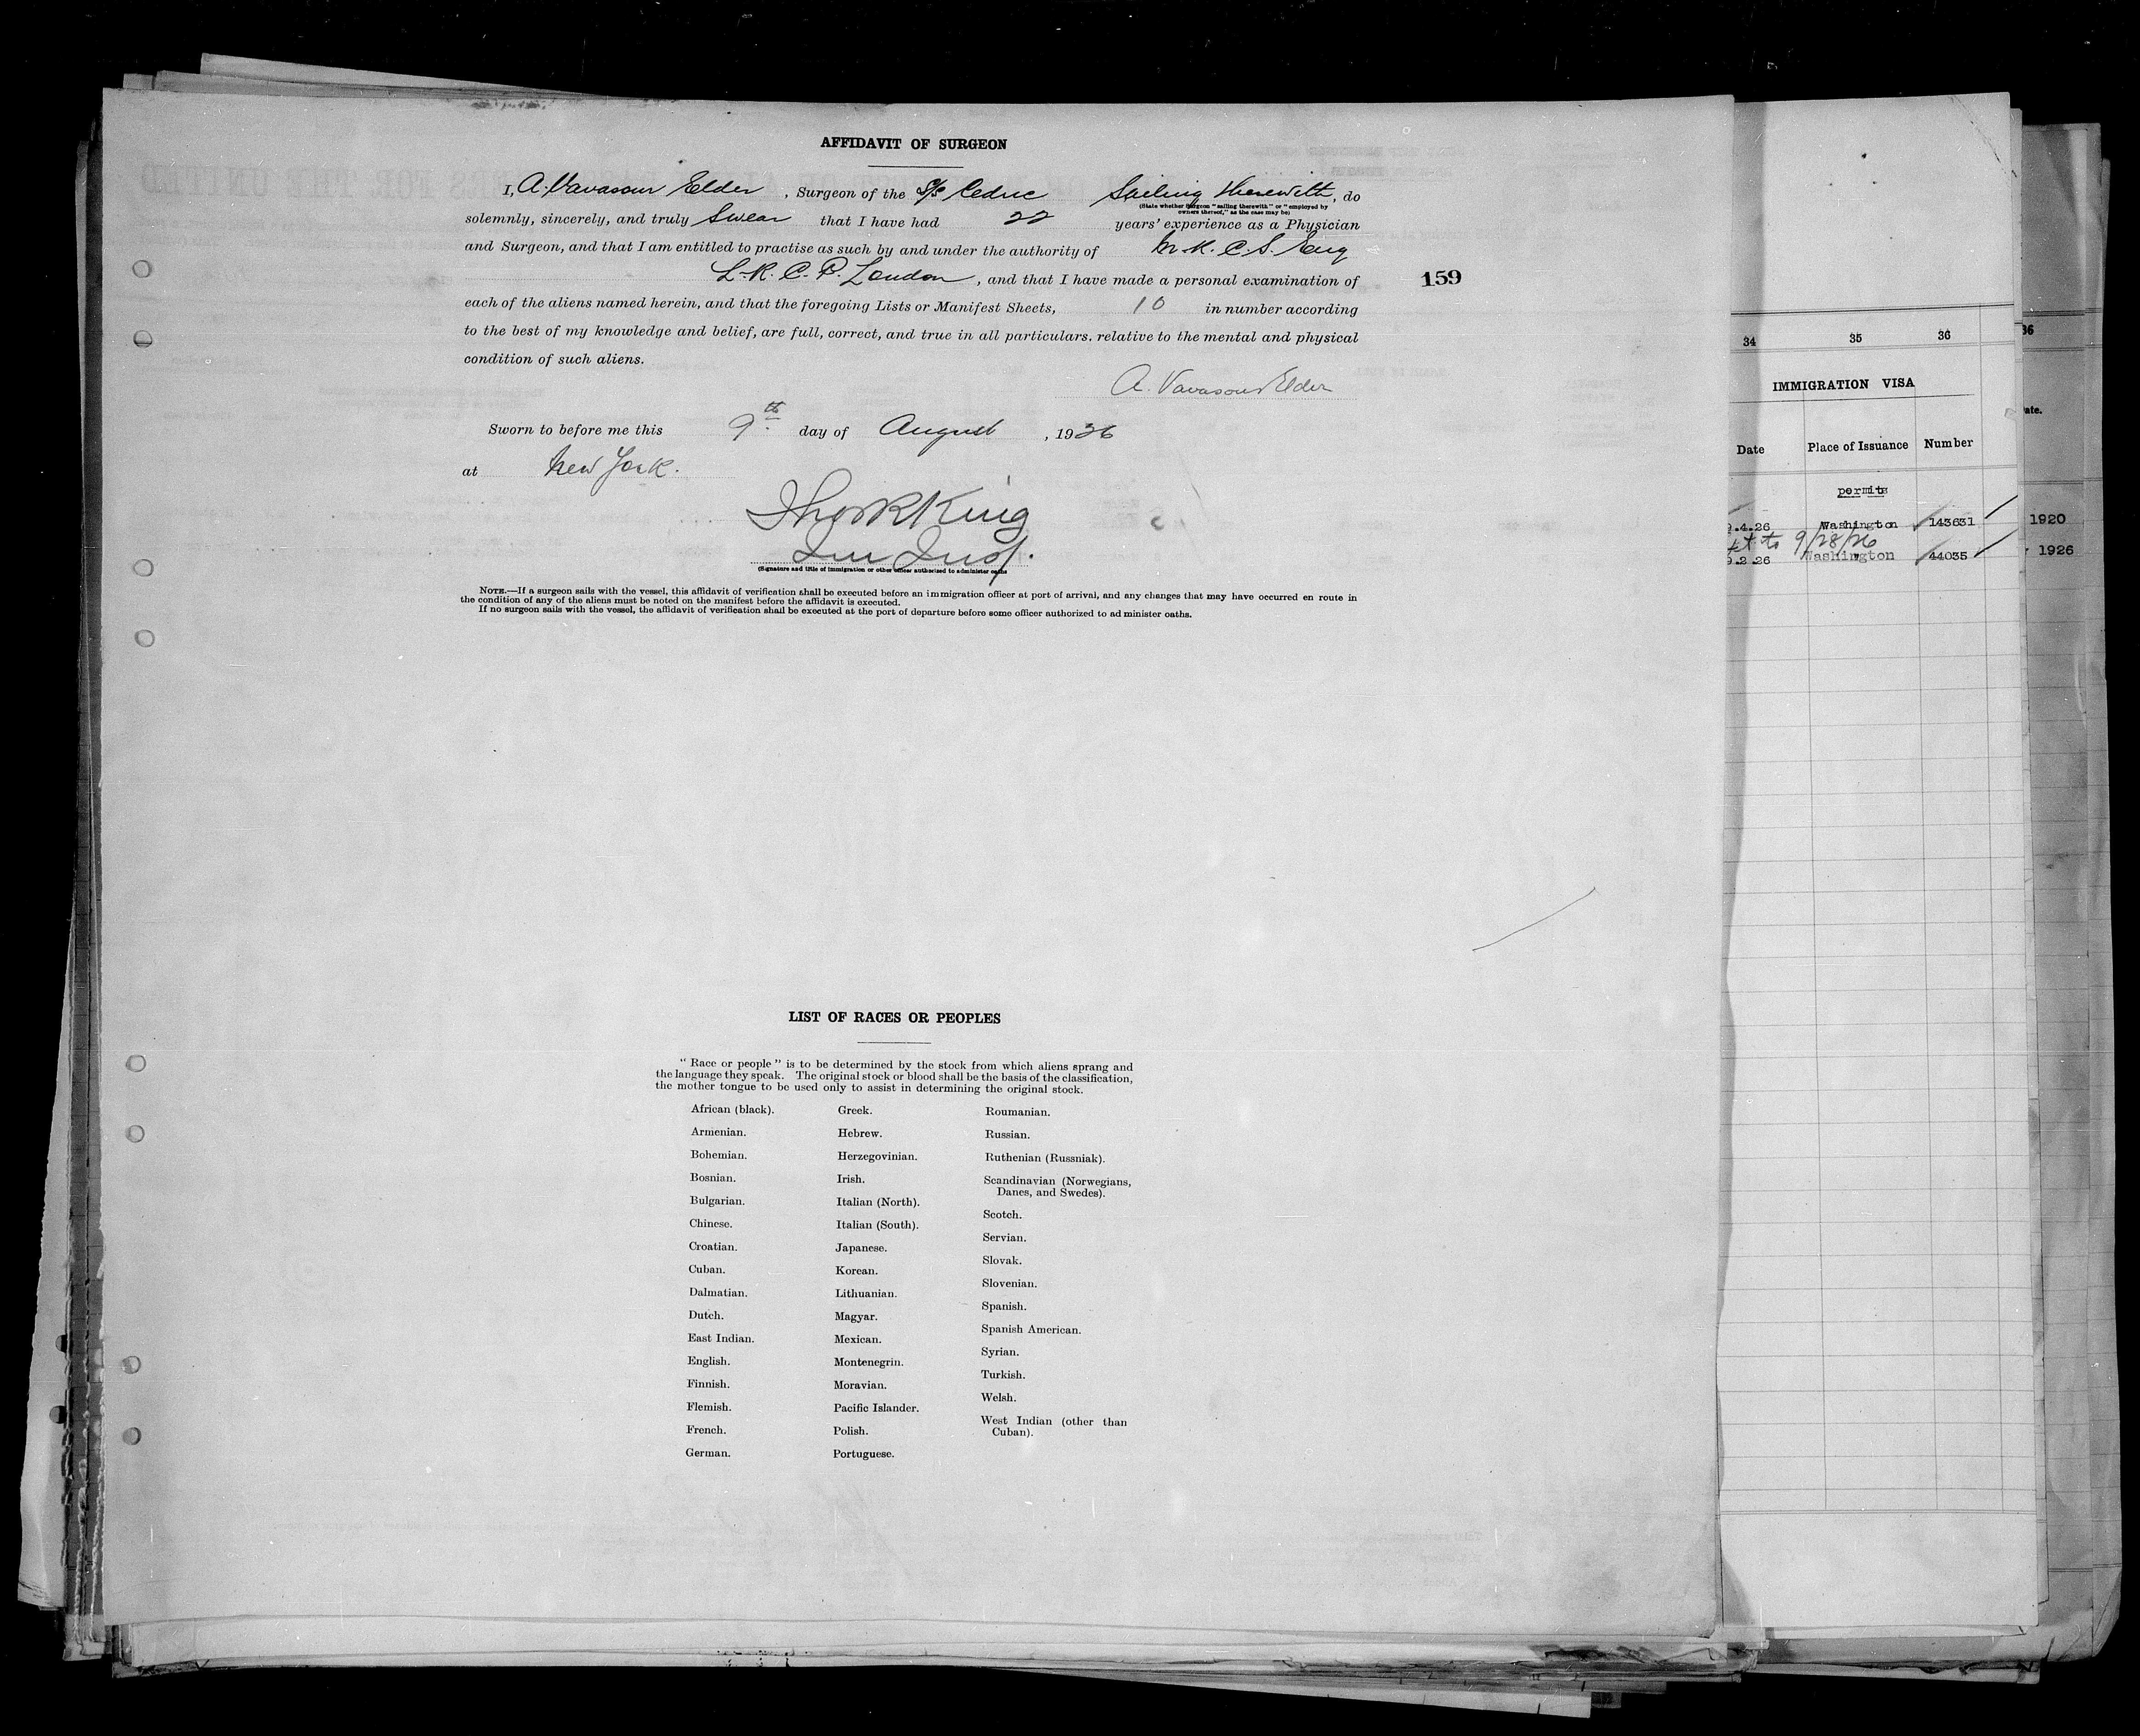 AFFIDAVIT OF SURGEON
I, A. Vavasour Elder, Surgeon of the S/S Cedric Sailing therewith, do
(State whether Surgeon "sailing therewith" or "employed by
owners thereof," as the case may be)
solemnly, sincerely, and truly Swear that I have had 22 years' experience as a Physician
and Surgeon, and that I am entitled to practise as such by and under the authority of M.R.C.S. Eng
L.R.C.P. London, and that I have made a personal examination of
159
each of the aliens named herein, and that the foregoing Lists or Manifest Sheets, 10 in number according
to the best of my knowledge and belief, are full, correct, and true in all particulars. relative to the mental and physical
condition of such aliens.
A. Vavasour Elder
Sworn to before me this 9th day of August, 1926
at New York.
King
Im Insp.
(Signature and title of immigration or other officer authorized to administer oaths
NOTE.—If a surgeon sails with the vessel, this affidavit of verification shall be executed before an immigration officer at port of arrival, and any changes that may have occurred en route in
the condition of any of the aliens must be noted on the manifest before the affidavit is executed.
If no surgeon sails with the vessel, the affidavit of verification shall be executed at the port of departure before some officer authorized to administer oaths.
LIST OF RACES OR PEOPLES
"Race or people" is to be determined by the stock from which aliens sprang and
the language they speak. The original stock or blood shall be the basis of the classification,
the mother tongue to be used only to assist in determining the original stock.
African (black).
Armenian.
Bohemian.
Bosnian.
Bulgarian.
Chinese.
Croatian.
Cuban.
Dalmatian.
Dutch.
East Indian.
English.
Finnish.
Flemish.
French.
German.
Greek.
Hebrew.
Herzegovinian.
Irish.
Italian (North).
Italian (South).
Japanese.
Korean.
Lithuanian.
Magyar.
Mexican.
Montenegrin.
Moravian.
Pacific Islander.
Polish.
Portuguese.
Roumanian.
Russian.
Ruthenian (Russniak).
Scandinavian (Norwegians,
Danes, and Swedes).
Scotch.
Servian.
Slovak.
Slovenian.
Spanish.
Spanish American.
Syrian.
Turkish.
Welsh.
West Indian (other than
Cuban).
34 35 36
IMMIGRATION VISA
Date Place of Issuance Number
permits
.4.26 Washington 143631
to 9/28/26
.2.26 Washington 44035
36
ate.
1920
1926